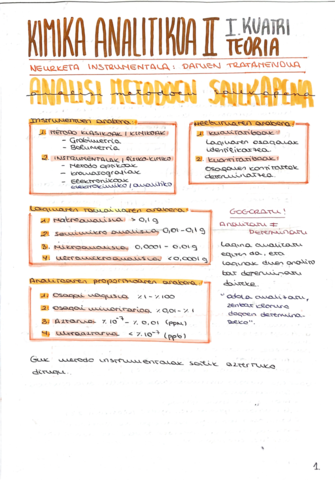 KIMIKA ANALITIKOA II I. KUATRI
TEORIA
NEURKETA INSTRUMENTALA: DATUEN TRATAMENDUA
ANALISI METODOEN SAILKAPENA
Instrumentuen arabera
1. METODO KLASIKOAK / KIMIKOAK
- Grabimetria
- Bolumetria
2. INSTRUMENTALAK / FISIKO-KIMIKO
- Metodo optikoak
- Kromatografiak
- Elektronikoak
elektrokimiko / analitiko
Helburuaren arabera
1. Kualitatiboak
Laginaren osagaiak
identifikatzea.
2. Kuantitatiboak
Osagaien kontzentrak
determinatzea
Laginaren tamainaren arabera
1. Makroanalisia > 0,1 g
2. Semimikro analisia 0,01 - 0,1 g
3. Mikroanalisia 0,0001 - 0,01 g
4. Ultramikroanalisia < 0,0001 g
GOGORATU!
Analizatu ≠
Determinatu
Lagina analizatu
egiten da, eta
laginak duen analito
bat determinatu
daiteke.
Analitoaren proportzioaren arabera
1. Osagai nagusia %1 - %100
2. Osagai minoritarioa %0,01 - %1
3. Aztarna % 10⁻⁷ - % 0,01 (ppm)
4. Ultraaztarna < % 10⁻⁷ (ppb)
Guk metodo instrumentalak soilik aztertuko
ditugu.
1.